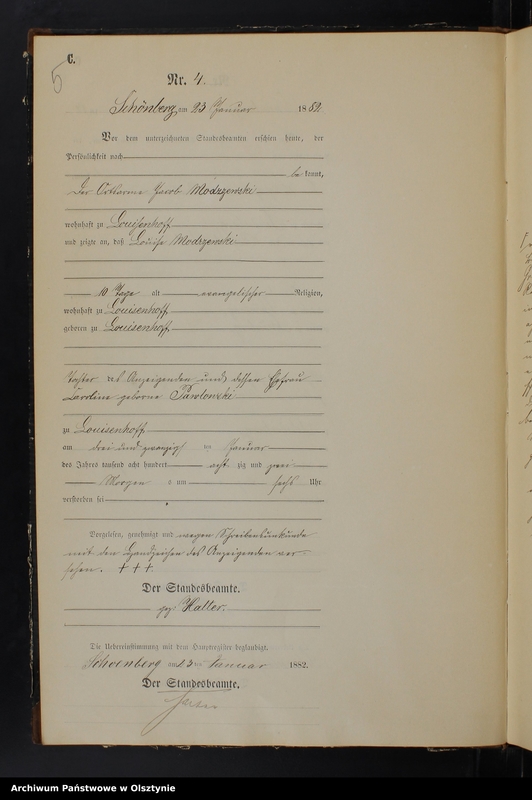 C.
5
Nr. 4.
Schönberg am 23 Januar 1882.
Vor dem unterzeichneten Standesbeamten erschien heute, der
Persönlichkeit nach
be kannt,
Der Ortsarme Jacob Modrzewski
wohnhaft zu Louisenhoff
und zeigte an, daß Louise Modrzewski
10 Tage alt evangelischer Religion,
wohnhaft zu Louisenhoff
geboren zu Louisenhoff
Tochter des Anzeigenden und dessen Ehefrau
Caroline geborne Pawlowski
zu Louisenhoff
am drei und zwanzigsten Januar
des Jahres tausend acht hundert acht zig und zwei
Morgens um sechs Uhr
verstorben sei
Vorgelesen, genehmigt und wegen Schreibensunkunde
mit den Handzeichen des Anzeigenden ver-
sehen. + + +
Der Standesbeamte.
gez. Halter.
Die Uebereinstimmung mit dem Hauptregister beglaubigt.
Schoenberg am 23 ten Januar 1882.
Der Standesbeamte.
Archiwum Państwowe w Olsztynie